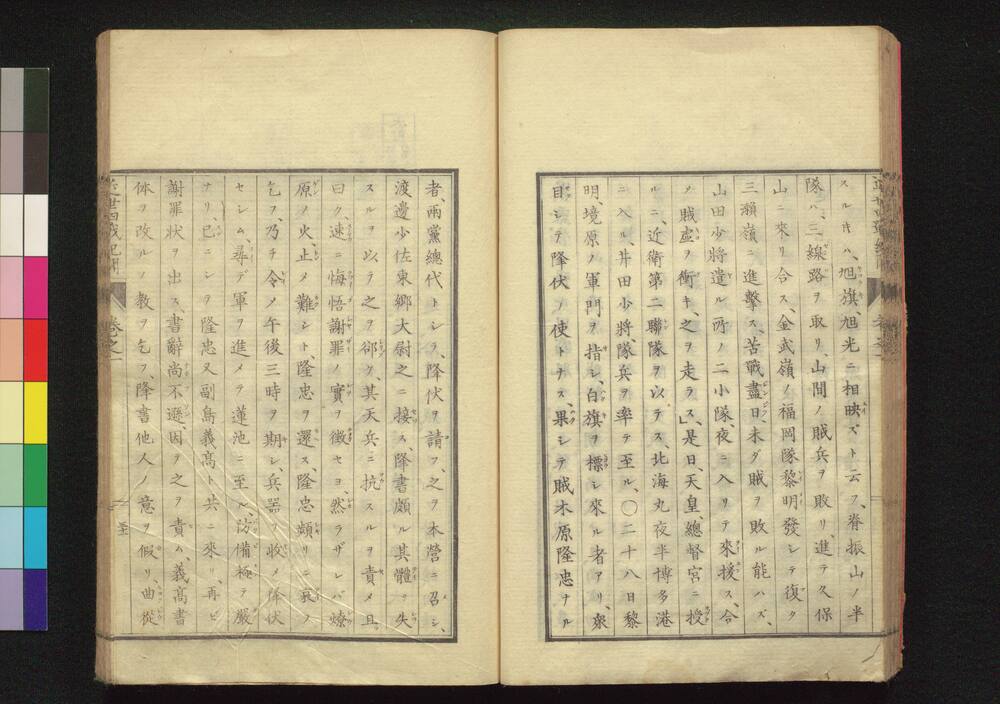 スルキハ、旭旗、旭光ニ相映ズト云フ、脊振山ノ半
隊ハ、三線路ヲ取リ、山間ノ賊兵ヲ敗リ、進テ久保
山ニ來リ合ス、金武嶺ノ福岡隊黎明發シテ復タ
三瀨嶺ニ進擊ス、苦戰盡日、未ダ賊ヲ敗ル能ハズ、
山田少將遣ル所ノ二小隊、夜ニ入リテ來援ス、合
メ賊虛ヲ衝キ、之ヲ走ラス」、是日、天皇、總督宮ニ授
ルニ、近衛第二聯隊ヲ以テス、北海丸夜半博多港
ニ入ル、井田少將、隊兵ヲ率テ至ル、〇二十八日黎
明、境原ノ軍門ヲ指シ、白旗ヲ標シ來ル者アリ、衆
目シテ降伏ノ使トナス、果シテ賊木原隆忠ナル
者、兩黨總代トシテ、降伏ヲ請フ、之ヲ本營ニ召シ、
渡邊少佐東郷大尉之ニ接ス、降書頗ル其體ヲ失
スルヲ以テ之ヲ郤ク、其天兵ニ抗スルヲ責メ且
曰ク、速ニ悔悟謝罪ノ實ヲ徵セヨ、然ラザレバ燎
原ノ火、止メ難シト、隆忠ヲ還ス、隆忠頻リニ哀ヲ
乞フ、乃チ令メ午後三時ヲ期シ、兵器ヲ收メ降伏
セシム、尋デ軍ヲ進メテ蓮池ニ至ル、防備極テ嚴
ナリ、已ニシテ隆忠又副島義高ト共ニ來リ、再ビ
謝罪狀ヲ出ス、書辭尚不遜、因テ之ヲ責ム、義高書
体ヲ改ルノ教ヲ乞フ、降書他人ノ意ヲ假リ、曲從
卷之一